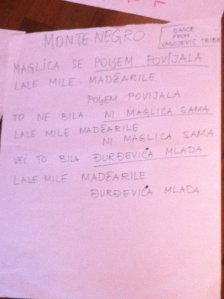 MONTE NEGRO
DANCE
FROM
VASOJEVIC TRIBE
MAGLICA SE POLJEM POVIJALA
LALE MILE MADŽARILE
POLJEM POVIJALA
TO NE BILA NI MAGLICA SAMA
LALE MILE MADŽARILE
NI MAGLICA SAMA
VEC TO BILA ĐURĐEVIĆA MLADA
LALE MILE MADŽARILE
ĐURĐEVIĆA MLADA